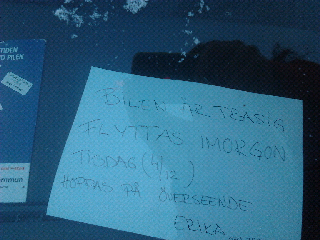 TIDEN
D PILEN
BILEN ÄR TRASIG
FLYTTAS IMORGON
TISDAG (4/12)
HOPPAS PÅ ÖVERSEENDE
ERIKA
mmun